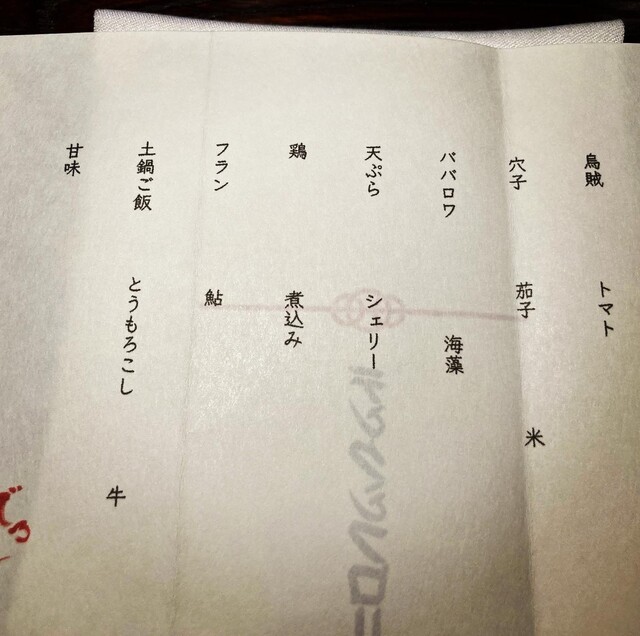 烏賊 トマト
穴子 茄子 米
ババロワ 海藻
天ぷら シェリー
鶏 煮込み
フラン 鮎
土鍋ご飯 とうもろこし 牛
甘味